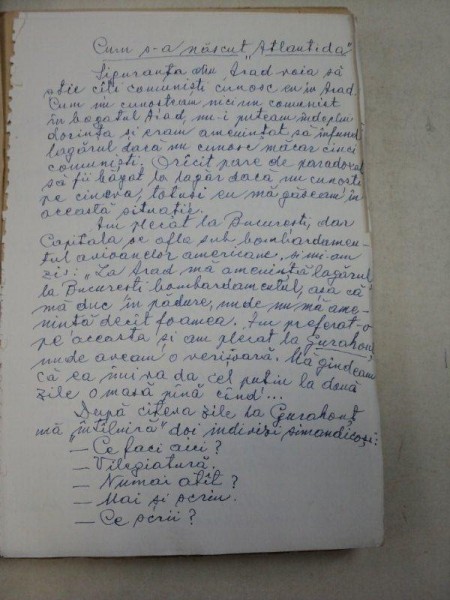 Cum s-a născut „Atlantida”
Siguranța din Arad voia să
știe cîți comuniști cunosc eu în Arad.
Cum nu cunoșteam nici un comunist
în bogatul Arad, nu-i puteam îndeplini
dorința și eram amenințat să înfund
lagărul dacă nu cunosc măcar cinci
comuniști. Oricît pare de paradoxal
să fii băgat la lagăr dacă nu cunoști
pe cineva, totuși eu mă găseam în
această situație.
Am plecat la București, dar
Capitala se afla sub bombardamen-
tul avioanelor americane și mi-am
zis: „La Arad mă amenință lagărul,
la București bombardamentul, așa că
mă duc în pădure, unde nu mă ame-
nință decît foamea. Am preferat-o
pe aceasta și am plecat la Gurahonț
unde aveam o verișoară. Mă gîndeam
că ea îmi va da cel puțin la două
zile o masă pînă cînd...
După cîteva zile la Gurahonț
mă „întîlniră” doi indivizi simandicoși:
— Ce faci aici?
— Vilegiatură.
— Numai atît?
— Mai și scriu.
— Ce scrii?